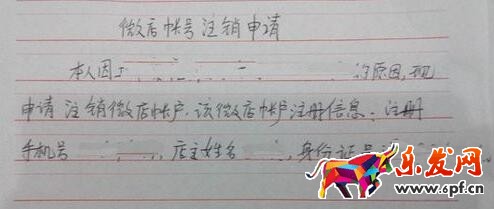 微店帐号注销申请
本人因 的原因,现
申请注销微店帐户.该微店帐户注册信息:注册
手机号 , 店主姓名 ,身份证号
乐发网
www.6pf.cn